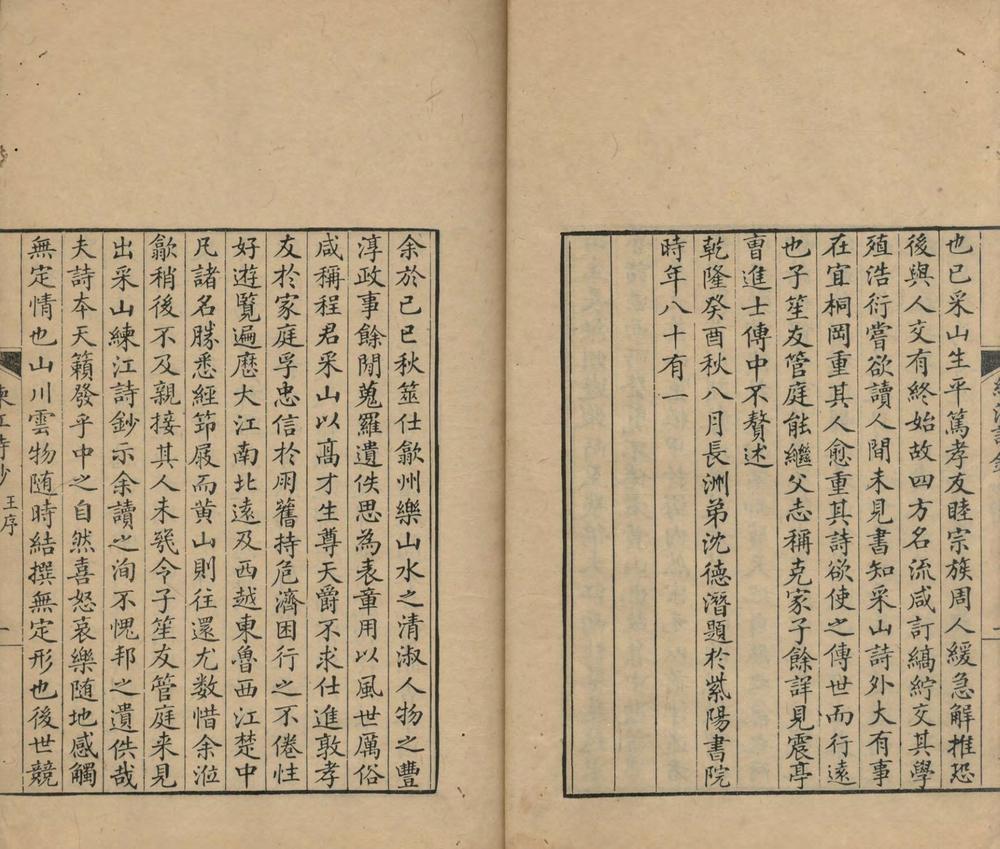 也已采山生平篤孝友睦宗族周人緩急解推恐
後與人交有終始故四方名流咸訂縞紵交其學
殖浩衍嘗欲讀人間未見書知采山詩外大有事
在宜桐岡重其人愈重其詩欲使之傳世而行遠
也子笙友管庭能繼父志稱克家子餘詳見震亭
曹進士傳中不贅述
乾隆癸酉秋八月長洲弟沈德潛題於紫陽書院
時年八十有一
余於己巳秋筮仕歙州樂山水之清淑人物之豐
淳政事餘閒蒐羅遺佚思為表章用以風世厲俗
咸稱程君采山以高才生尊天爵不求仕進敦孝
友於家庭孚忠信於朋舊持危濟困行之不倦性
好遊覽遍歷大江南北遠及西越東魯西江楚中
凡諸名勝悉經笻屐而黃山則往還尤数惜余涖
歙稍後不及親接其人未幾令子笙友管庭來見
出采山練江詩鈔示余讀之洵不愧邦之遺佚哉
夫詩本天籟發乎中之自然喜怒哀樂随地感觸
無定情也山川雲物随時結撰無定形也後世競
練江詩鈔 王序 一